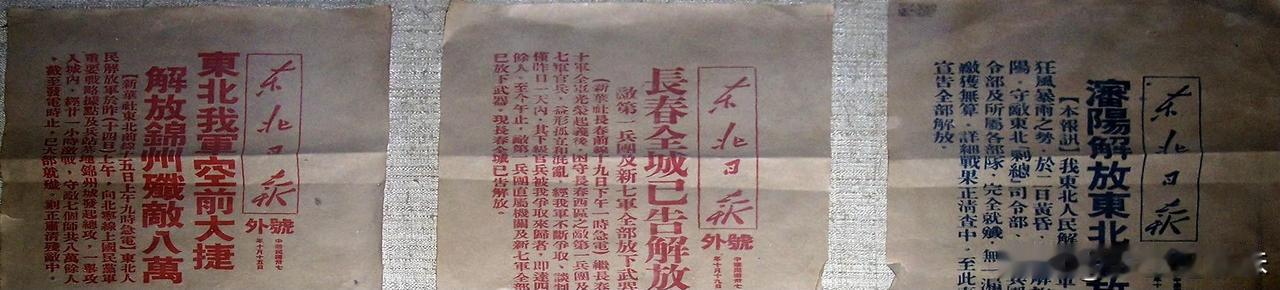 东北日报
號外
中華民國卅七
年十月十五日
東北我軍空前大捷
解放錦州殲敵八萬
【新華社東北前線十五日上午九時急電】東北人
民解放軍於昨(十四日)上午,向北寧線上國民黨軍
重要戰略據點及兵站基地錦州城發起總攻,一舉攻
入城內,經卅一小時激戰,守敵七個師共八萬餘人
,截至發電時止,已大部就殲。刻正肅清殘敵中。
东北日报
號外
中華民國卅七
年十月十九日
長春全城已告解放
敵第一兵團及新七軍全部放下武器
(新華社長春前線十九日下午一時急電)繼長春
十軍全軍光榮起義後,困守長春西區之敵第一兵團及
七軍官兵,益形孤立與混亂,經我軍不斷爭取、談判
僅昨日一天內,其下級官兵被我爭取來歸者,即達四
餘人,至今午止,敵第一兵團直屬機關及新七軍全部
已放下武器。現長春全城已告解放。
东北日报
瀋陽解放東北
【本報訊】我東北人民解
狂風暴雨之勢,於二日黃昏,解
陽,守敵東北「剿總」司令部、
令部及所屬各部隊,完全就殲,無一漏
繳獲無算,詳細戰果正清查中,至此
宣告全部解放。